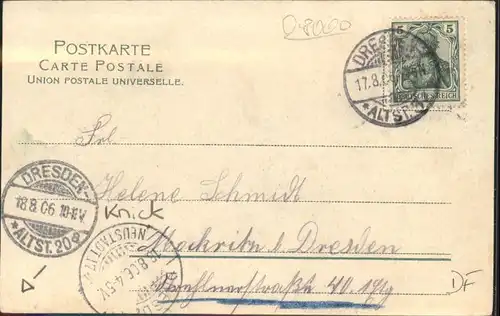 D-8000
POSTKARTE
CARTE POSTALE
UNION POSTALE UNIVERSELLE.
5 5
DEUTSCHES REICH
DRESDEN
17.8.06
*ALTST.
Frl.
Helene Schmidt
DRESDEN-
18.8.06.10-11V
*ALTST.20
Knick
NEUSTADT
18.8.06.4-5V
Mockritz b/ Dresden
40. I.
DF